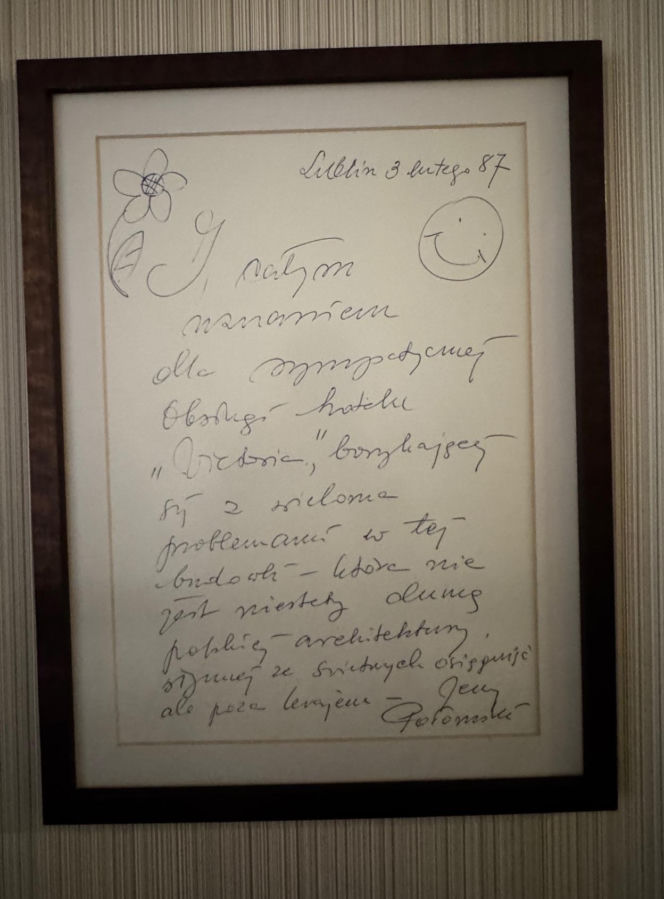 Lublin 3 lutego 87
Z całym
uznaniem
dla sympatycznej
Obsługi hotelu
„Victoria”, borykającej
się z wieloma
problemami w tej
budowli – która nie
jest niestety dumą
polskiej architektury,
słynnej ze świetnych osiągnięć
ale poza krajem – Jerzy
Połomski